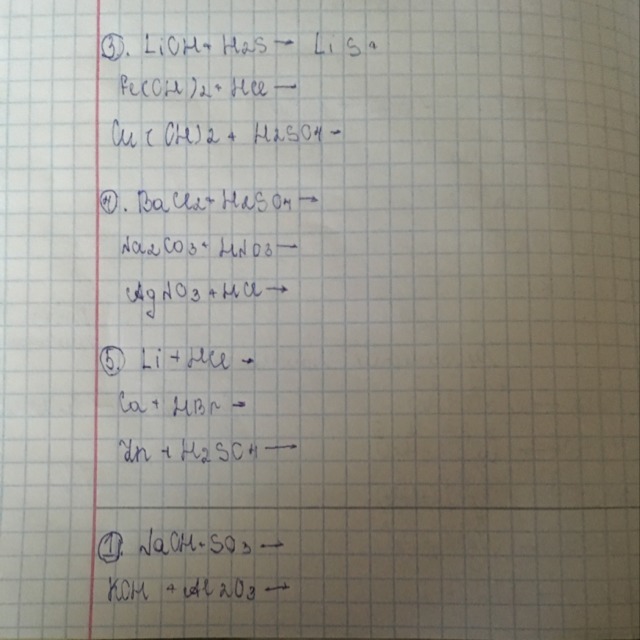 ③. LiOH + H2S → Li S
Fe(OH)2 + HCl →
Cu(OH)2 + H2SO4 →
④. BaCl2 + H2SO4 →
Na2CO3 + HNO3 →
AgNO3 + HCl →
⑤ Li + HCl →
Ca + HBr →
Zn + H2SO4 →
① NaOH + SO3 →
KOH + Al2O3 →